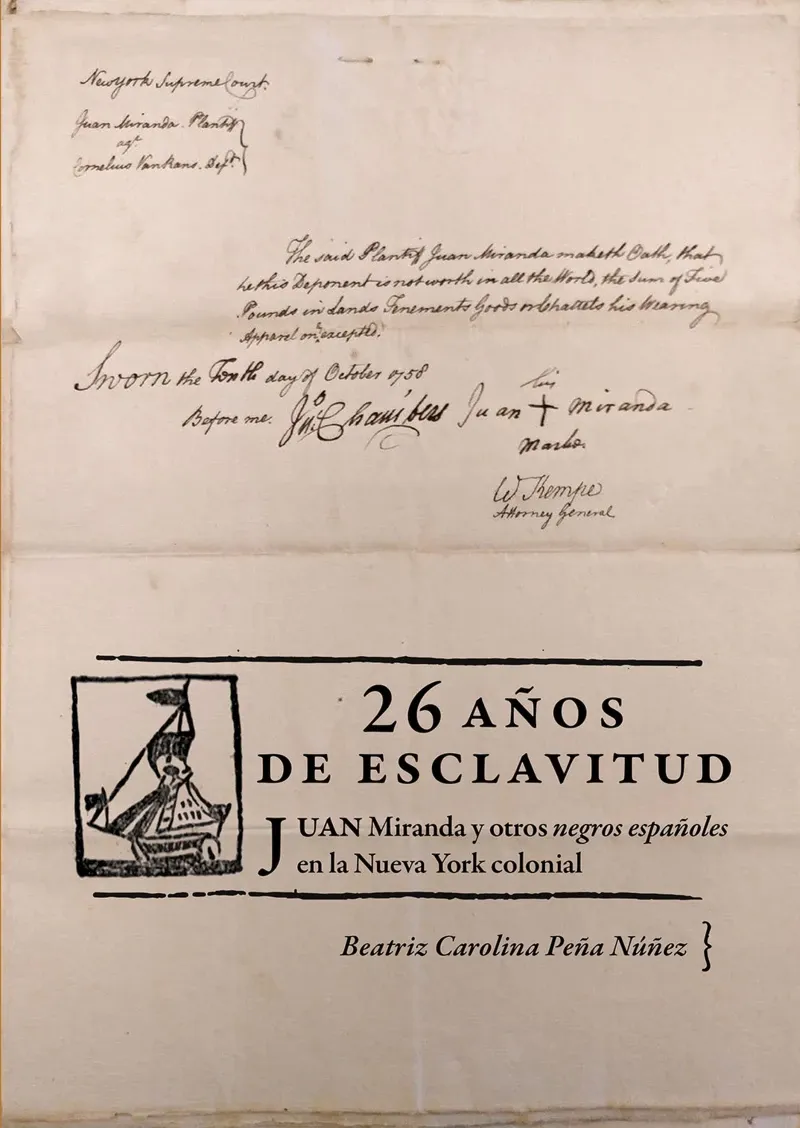 NewYork Supreme Court.
Juan Miranda. Plantiff
agt.
Cornelius VanRans. Deft.
The said Plantiff Juan Miranda maketh Oath, that
he this Deponent is not worth in all the World, the Sum of Five
Pounds in Lands Tenements Goods or Chattels his Wearing
Apparel only excepted.
Sworn the Tenth day of October 1758
Before me. Jno. Chambers
his
Juan + Miranda
Marke.
W Kempe
Attorney General
26 AÑOS
DE ESCLAVITUD
JUAN Miranda y otros negros españoles
en la Nueva York colonial
Beatriz Carolina Peña Núñez }